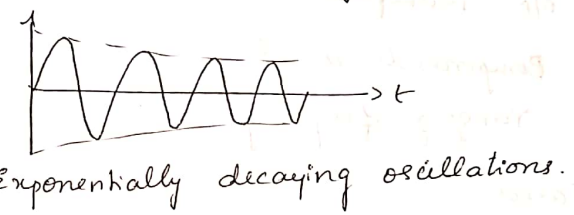 t
Exponentially decaying oscillations.